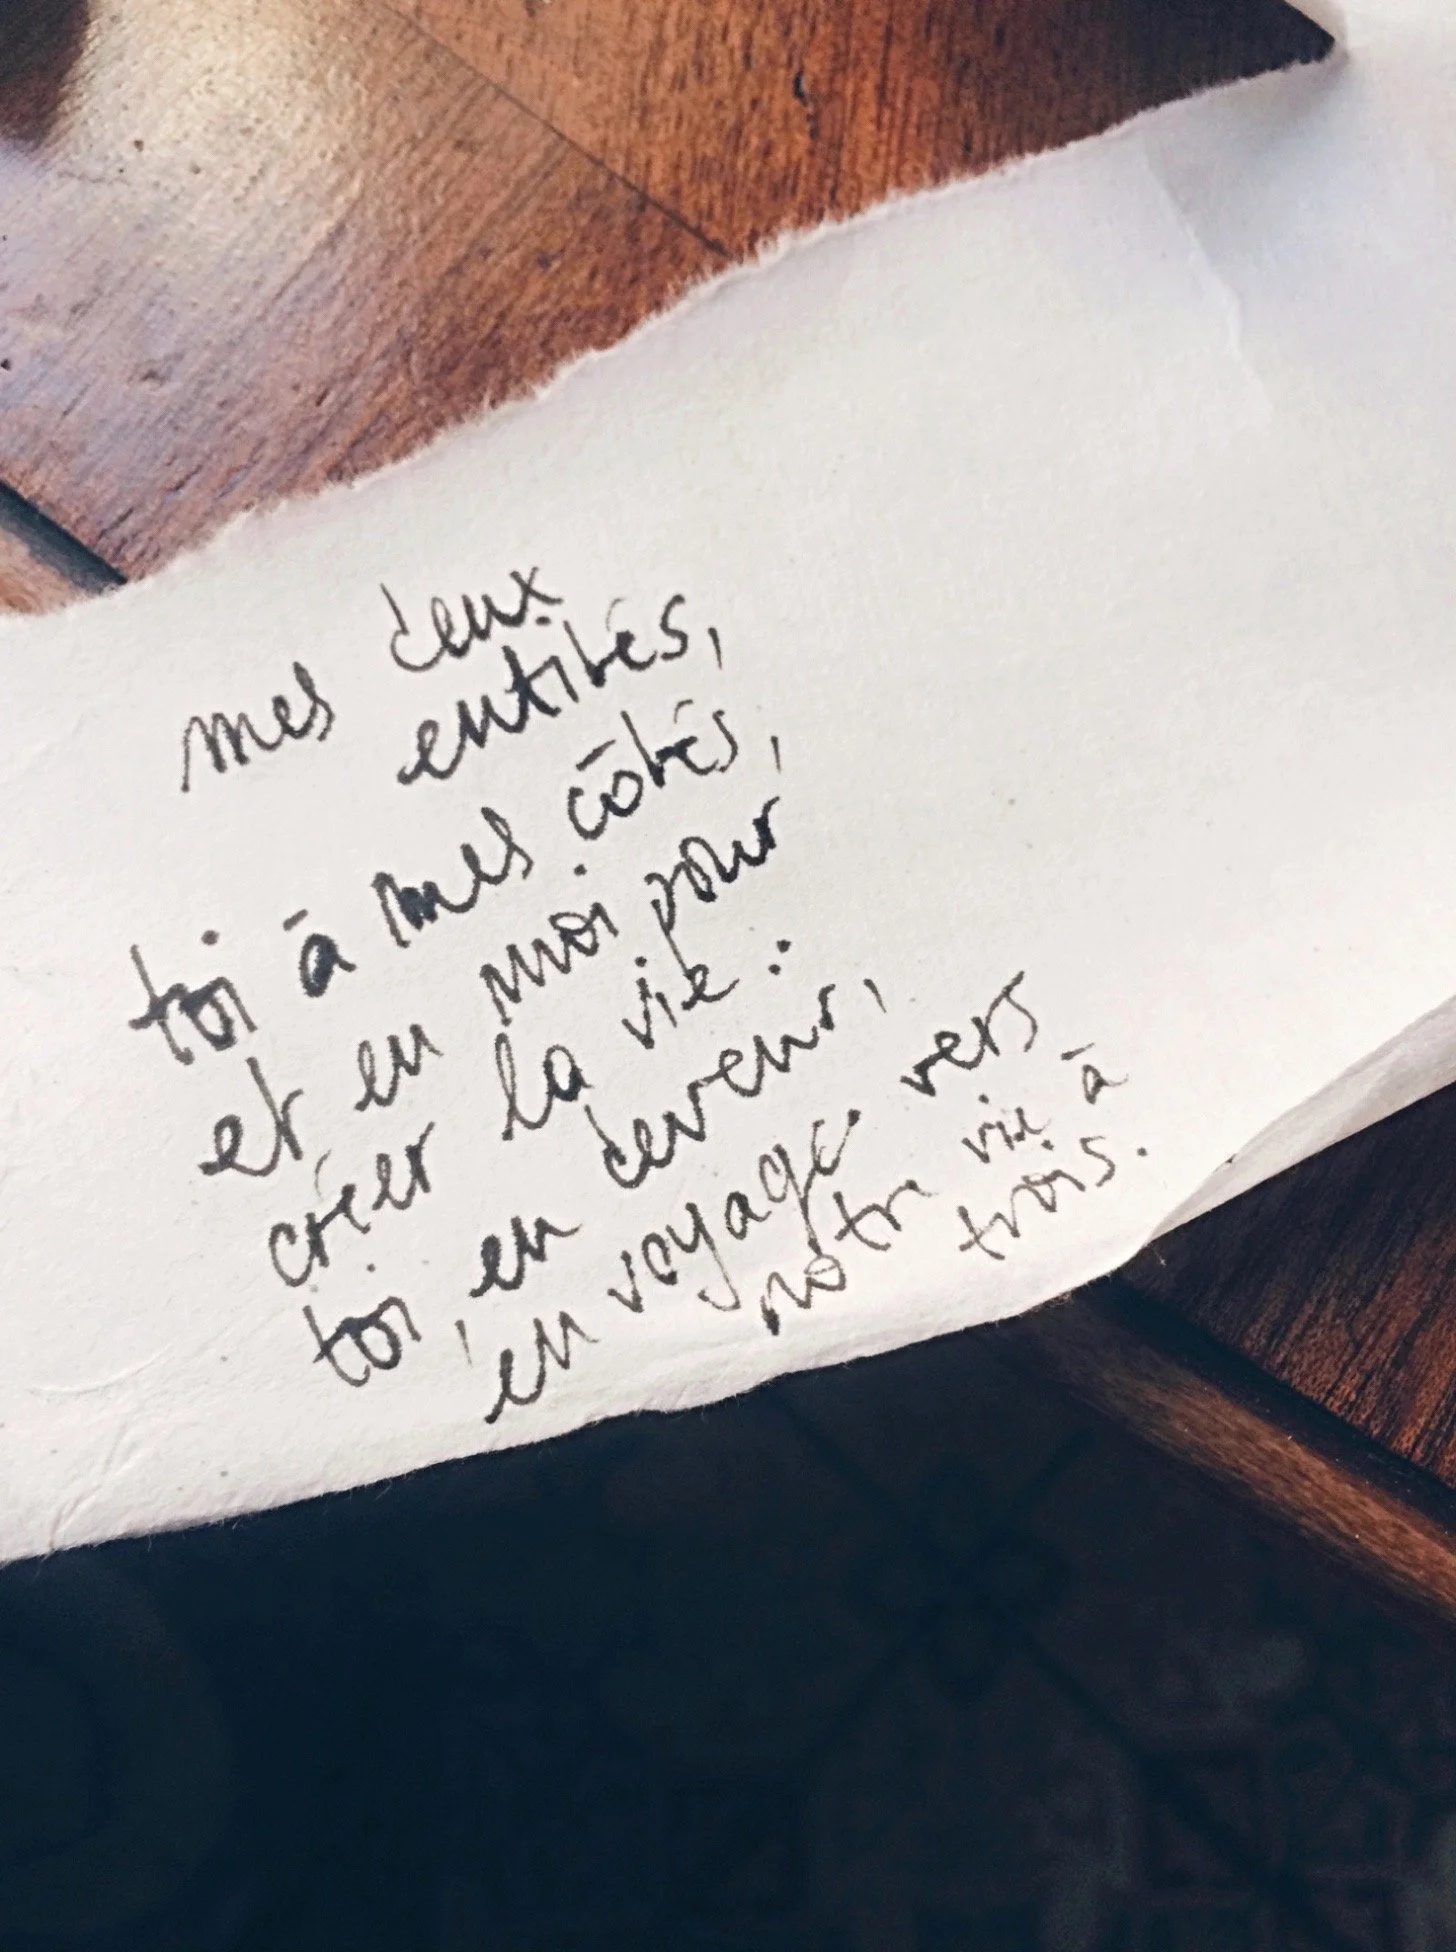 mes deux
entités,
toi à mes côtés,
et en moi pour
créer la vie :
toi, en devenir,
en voyage vers
notre vie à
trois.